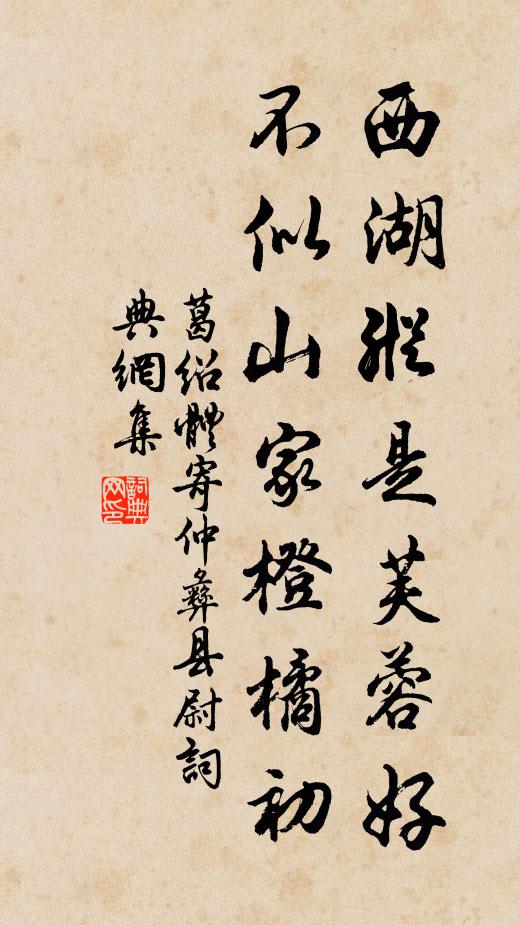 西湖縱是芙蓉好
不似山家橙橘初
葛紹體寄仲彝县尉詞
典網集
詞典
网印